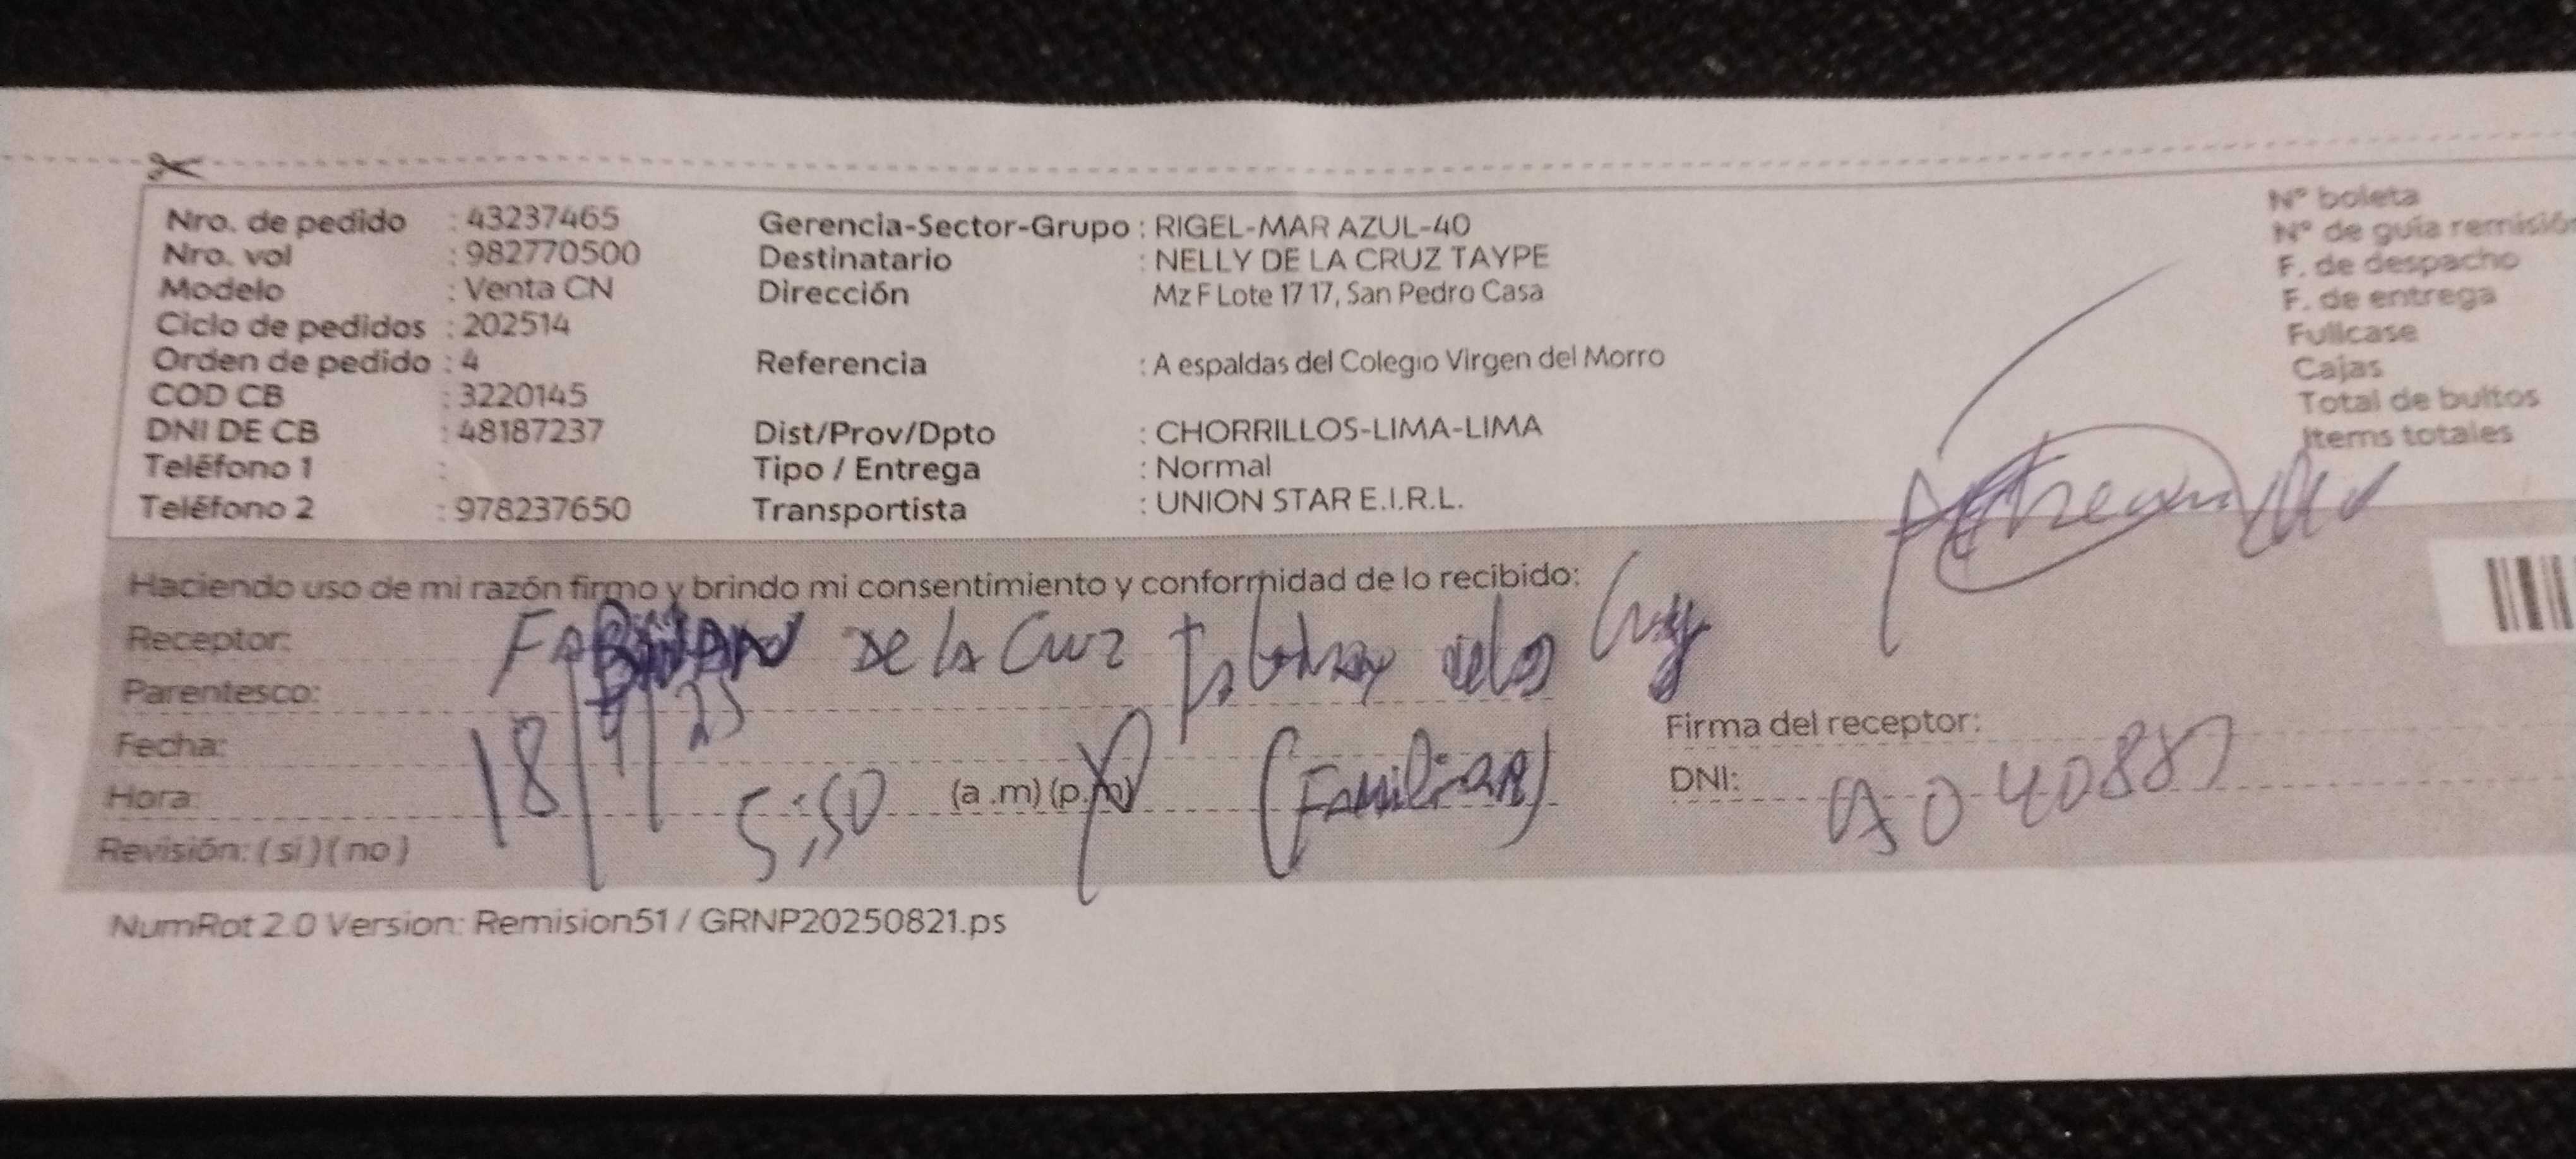 Nro. de pedido : 43237465
Nro. vol : 982770500
Modelo : Venta CN
Ciclo de pedidos : 202514
Orden de pedido : 4
COD CB : 3220145
DNI DE CB : 48187237
Teléfono 1 :
Teléfono 2 : 978237650
Gerencia-Sector-Grupo : RIGEL-MAR AZUL-40
Destinatario : NELLY DE LA CRUZ TAYPE
Dirección Mz F Lote 17 17, San Pedro Casa
Referencia : A espaldas del Colegio Virgen del Morro
Dist/Prov/Dpto : CHORRILLOS-LIMA-LIMA
Tipo / Entrega : Normal
Transportista : UNION STAR E.I.R.L.
N° boleta
N° de guía remisión
F. de despacho
F. de entrega
Fullcase
Cajas
Total de bultos
Items totales
Haciendo uso de mi razón firmo y brindo mi consentimiento y conformidad de lo recibido:
Receptor: De la Cruz
Parentesco:
Fecha: 18/9/25
Hora: 5:50 (a.m) (p.m) (Familiar)
Revisión: (si) (no)
Firma del receptor:
DNI:
NumRot 2.0 Version: Remision51 / GRNP20250821.ps